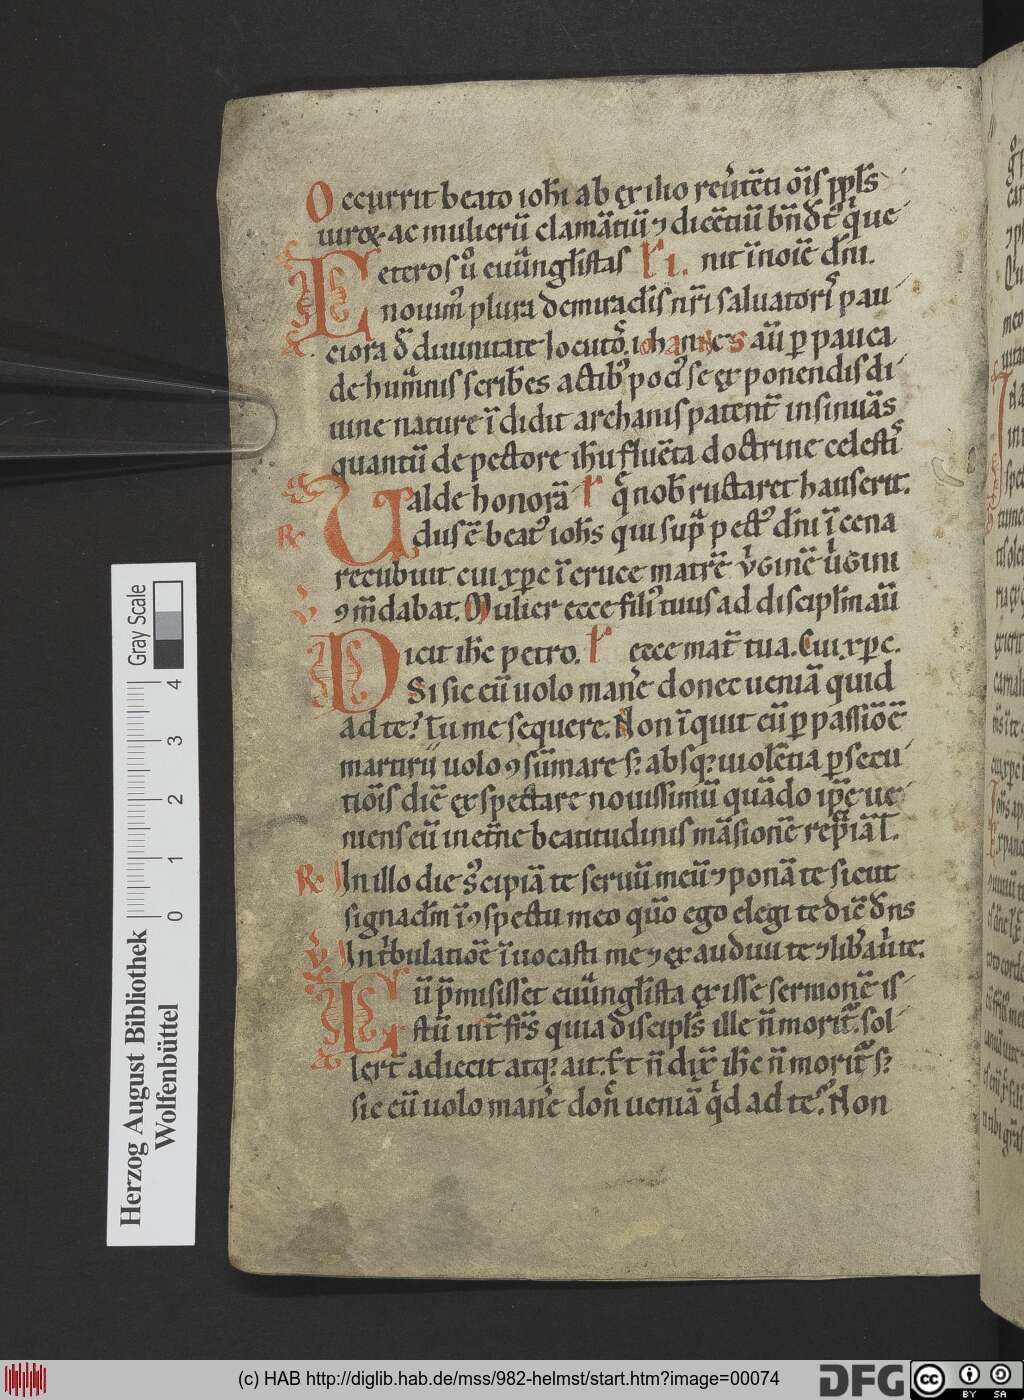 Occurrit beato ioh̄i ab exilio reu̓tēti ōis ppl̄s
uiroꝝ ac mulierū clamātiū ⁊ dicētiū bn̄d̓t q̓ ue
Ceteros u̓ euungl̄istas l̓ i. nit ī noīe dn̄i.
nouim᷒ plura de miradis nr̄i saluatori᷒ pau
ciora d̓ diuinitate locuto᷒. iohannes aū ꝑ pauca
de humanis scribēs actib᷒ poci᷒ se exponendis di
uine nature īdidit archanis patent̄ insinuās
quantū de pectore ih̄u fluēta doctrine celesti᷒
Valde honorā l̓ q̄ nob̄ ructaret hauserit.
R̷ dus ē beat᷒ ioh̄s qui sup̄ pect᷒ dn̄i ī cena
recubuit cui xp̄c ī cruce matrē u̓ginē u̓gini
ꝯm̄dabat. Mulier ecce fili᷒ tuus ad discipl̄m aū
Dicit ih̄c petro. l̓ ecce mat̄ tua. Cui xp̄c.
Si sic eū uolo man̓e donec ueniā quid
ad te? Tu me sequere. Non īquit eū ꝑ passiōē
martirii uolo ꝯsūmare s; absq; uiolētia ꝑsecu
tiōis diē exspectare nouissimū quādo ip̄e ue
niens eū in et̄ne beatitudinis māsionē recipiā l.
R̷ In illo die s᷒cipiā te seruū meū ⁊ ponā te sicut
signacl̄m ī ꝯspectu meo q̄o ego elegi te diē dn̄s
V̷ In t̓bulatiōe īuocasti me ⁊ exaudiui te ⁊ lib̓aui te.
Cū p̄misisset euungl̄ista exisse sermonē is
stū int̄ fr̄s quia discipl̄s ille n̄ morit̄. sol
lert̄ adiecit atq; ait. Et n̄ dix̄ ih̄c n̄ morit̄ s;
sic eū uolo man̓e don̄ ueniā q̓d ad te? Non
Gray Scale
4
3
2
1
0
Herzog August Bibliothek
Wolfenbüttel
(c) HAB http://diglib.hab.de/mss/982-helmst/start.htm?image=00074
DFG
cc BY SA